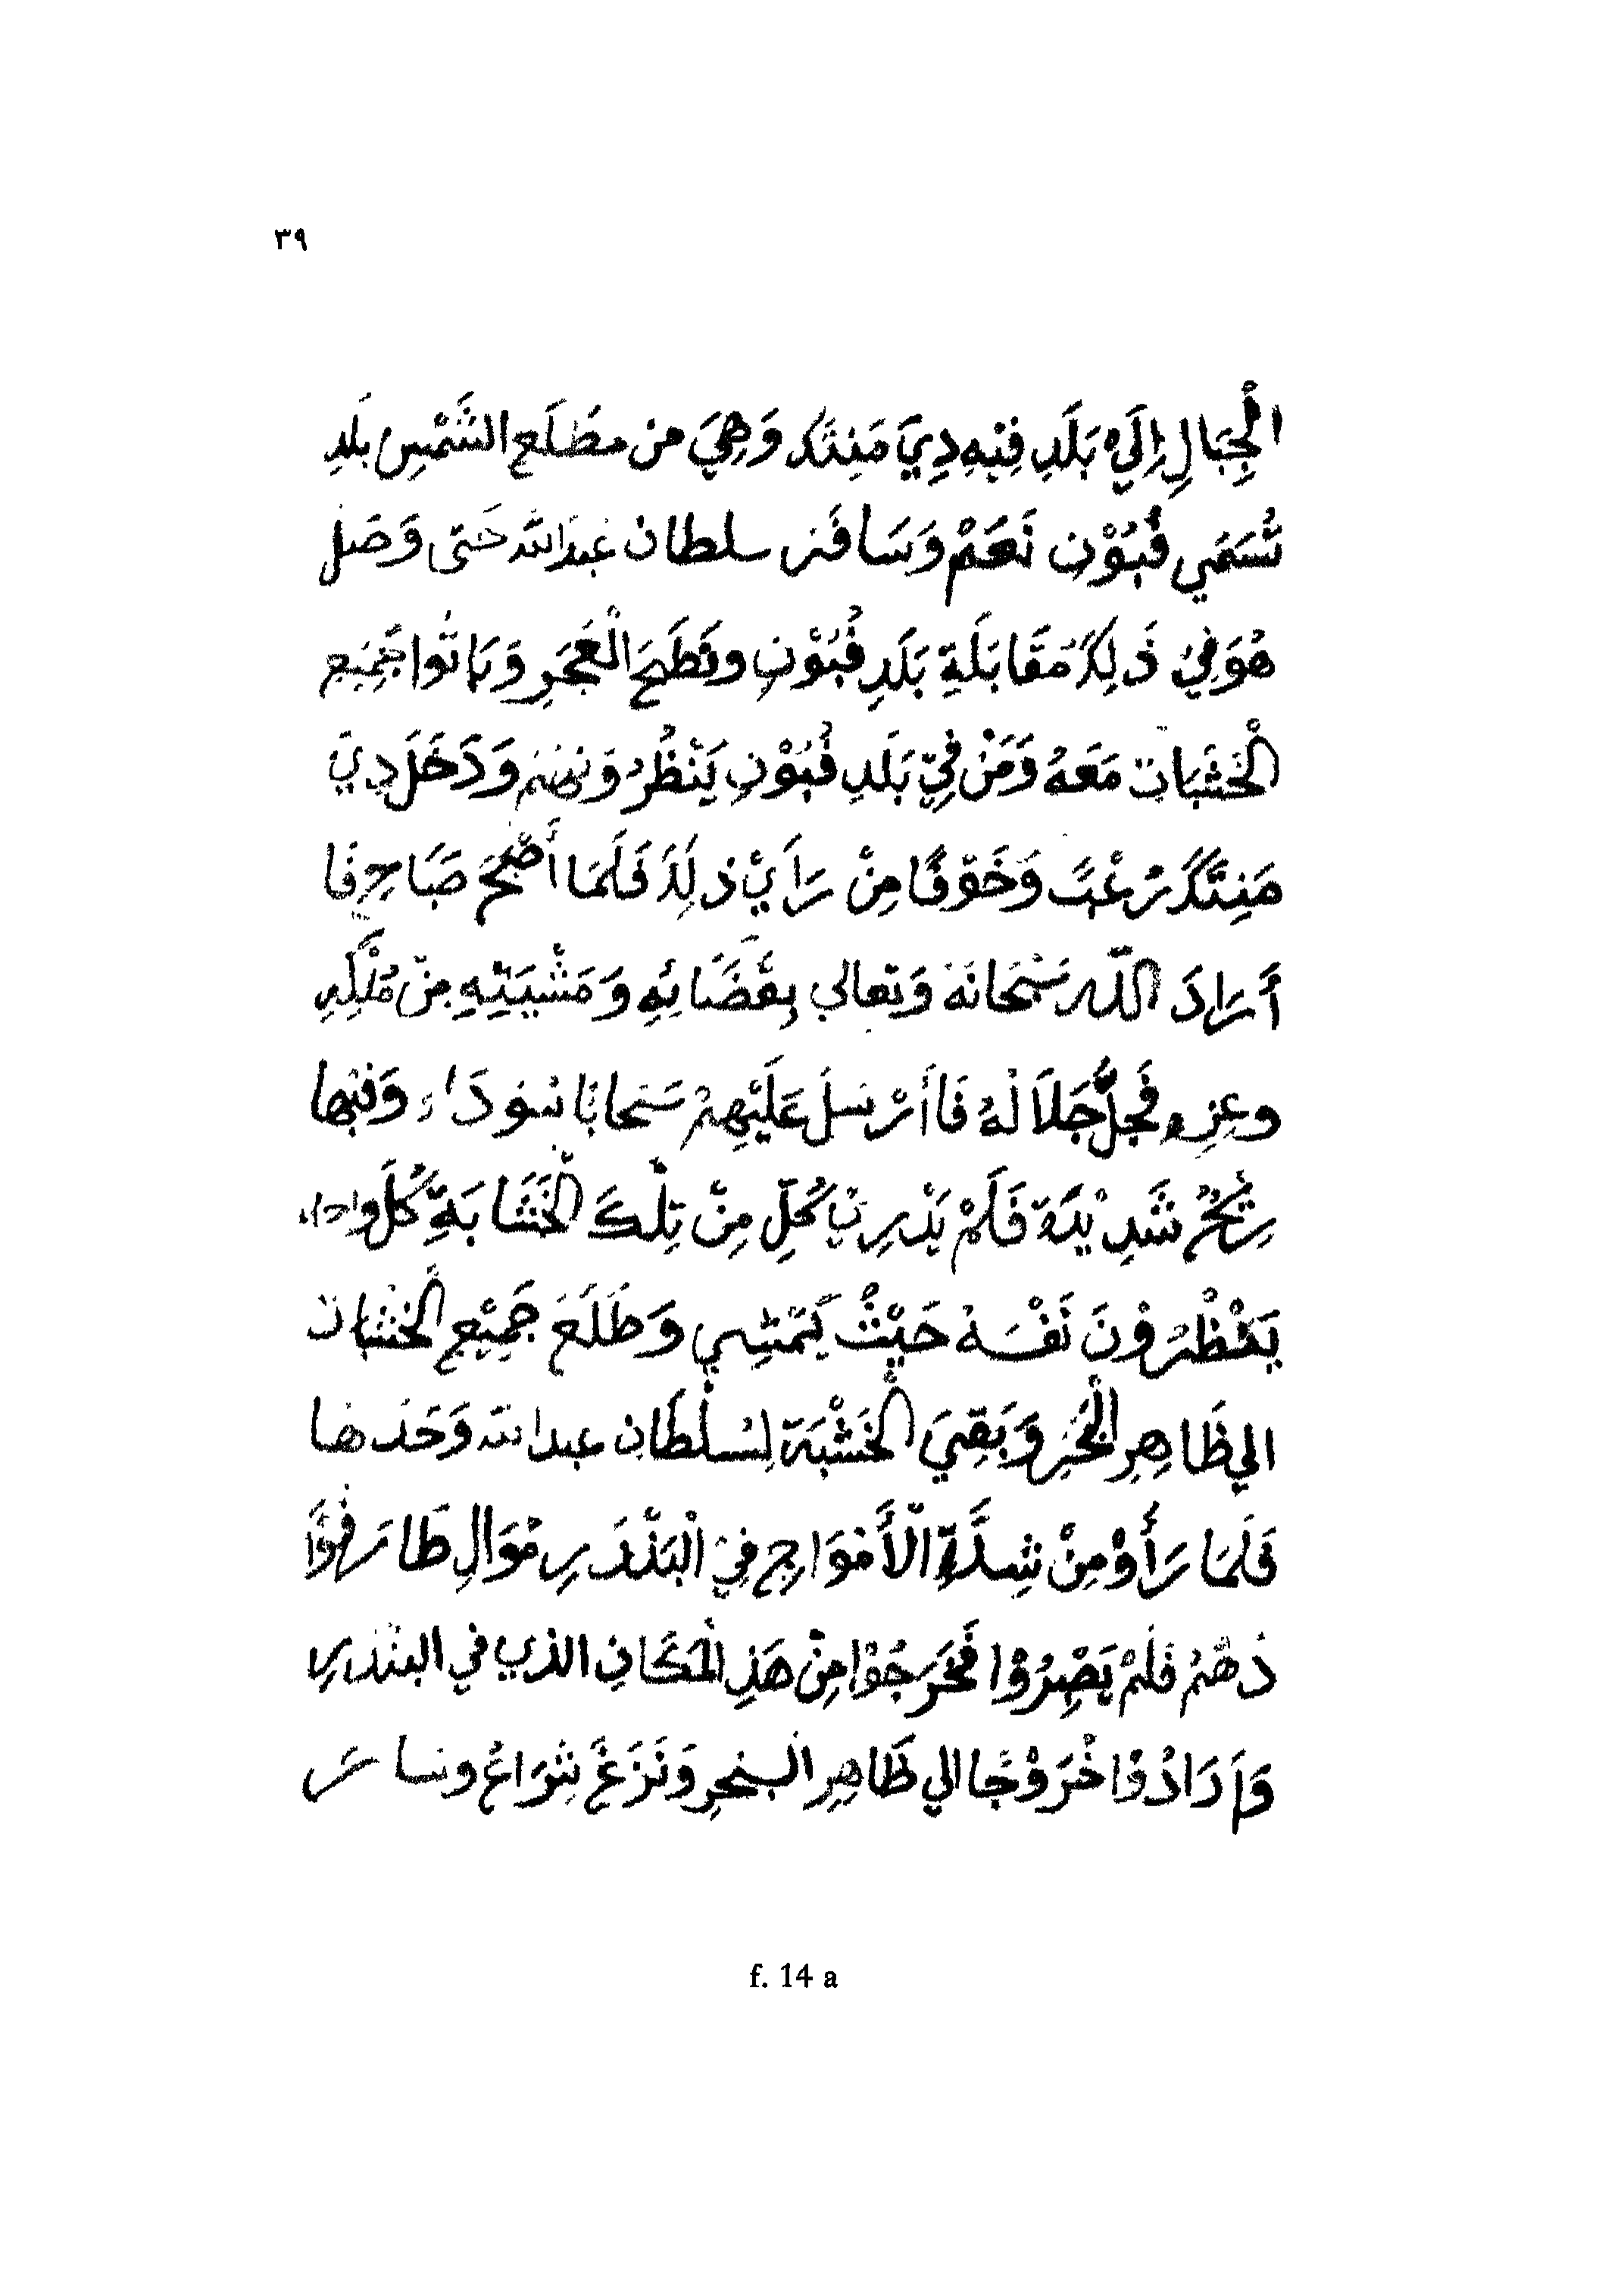 ٣٩
الْجِبَالِ إِلَيْ بَلَدِ فِيْهِ دِيَ مَنِتَكَ وَهِيَ من مطَلَع الشَّمْسِ بلدِ
تُسَمَي فُبُوْنِ نَعَمْ وَسَافَر سلطان عبدالله حَتى وَصَل
هُوَ فِيْ ذَلِكَ مُقَابَلَةِ بَلَدِ فُبُوْنِ وتَطَحَ الْعَجَرِ وَبَاتُوا جَمِيع
الْخَشَبَات مَعَهُ وَمَنْ فِيْ بَلَدِ فُبُوْنِ يَنْظُرُوْنهُمْ وَدَخَلَ دِيَ
مَنِتَكَ رُعْبً وَخَوْفًا مِنْ رَايْ ذلِكَ فَلَمَا أَصْبَحَ صَبَاحِ فَا
أَرَادَ الله سُبْحَانَهُ وَتعالي بِقَضَائِهِ وَمَشْيَيَتِهِ مِنْ مُلْكِهِ
وعِزِهِ فَجَلَّ جَلَالَهُ فَاأَرْسَلَ عَلَيْهِمْ سَحابًا سُودَاء وَفيها
رِيْحُ شَدِيْدَة فَلَمْ يَدْرِيْ كُلِ مِنْ تِلْكَ الْخَشَابَةِ كُلُ واحد
يَنْظُرُوْنَ نَفْسَهُ حَيْثُ يَمْشِي وَطَلَعَ جَمِيْعِ الْخشبات
الي ظَاهِرِ الْبَحْرِ وَبَقِيَ الْخَشْبَة لِسُلْطَانِ عبدالله وَحَدها
فَلَمَا رَأَوْ مِنْ شِدَّةِ الْأَمْوَاجِ فِيْ الْبَنْدَرِ مُوَالِ طَارَفُوْا
ذهُمْ فَلَمْ يَصْبِرُوْا فَخَرَجُوْا مِنْ هَذِ الْمَكَانِ الذي في البنْدَرِ
وَأَرَادُوْا خُرَوْجًا الي ظَاهِرِ الْبَحرِ وَنَزَعَ شِرَاعُ وسارَ
f. 14 a